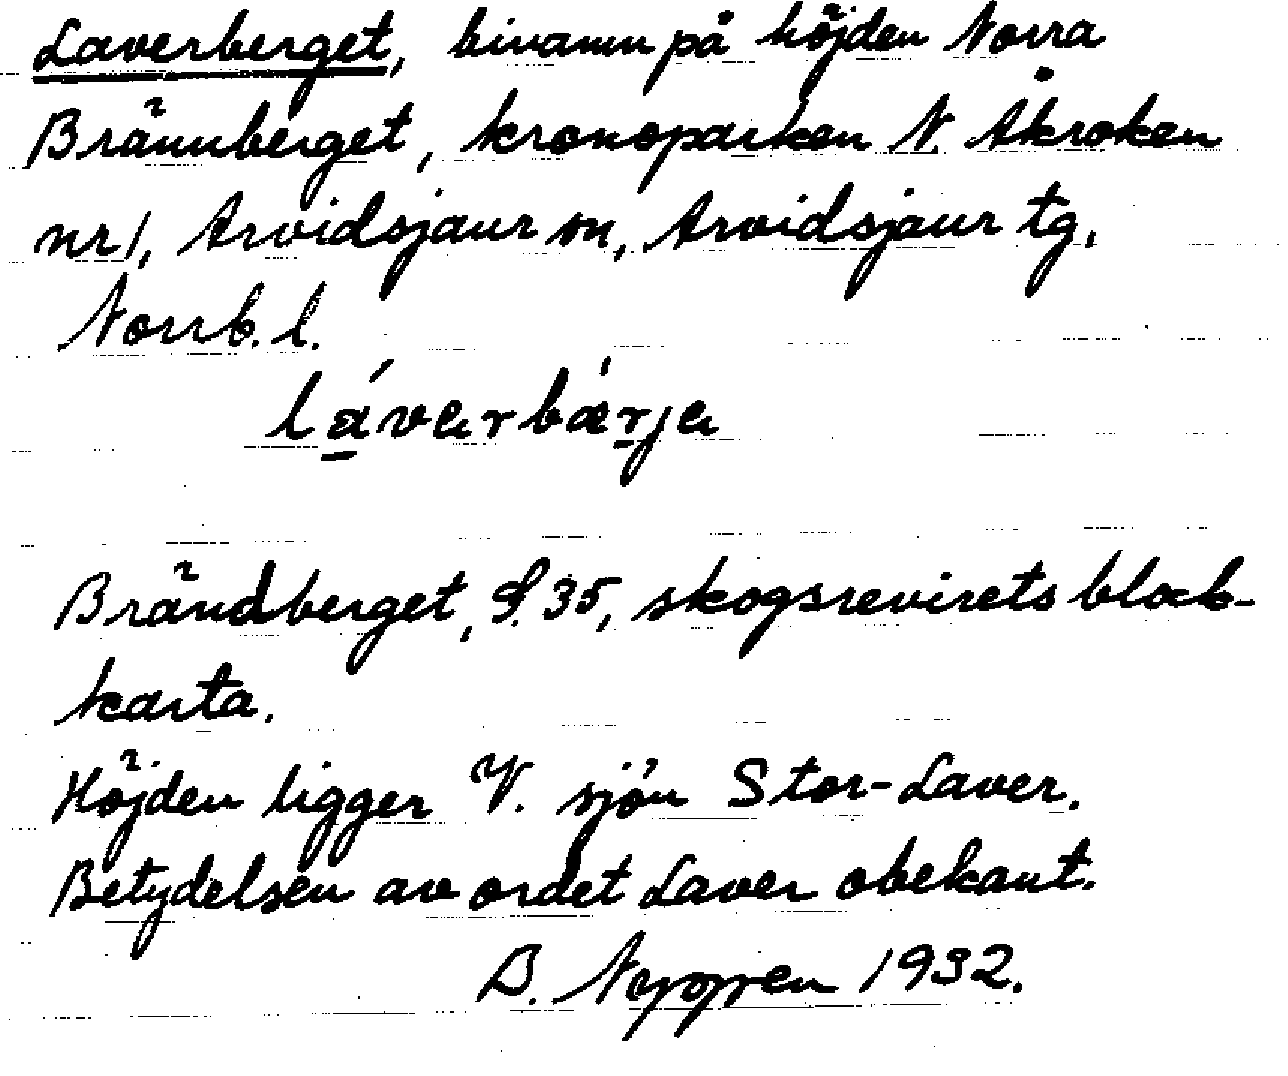 Laverberget, binamn på höjden Norra
Brännberget, kronoparken N. Åkroken
nr 1, Arvidsjaur sn, Arvidsjaur tg,
Norrb. l.
láverbǽrja
Brändberget, S. 35, skogsrevirets block-
karta.
Höjden ligger V. sjön Stor-Laver.
Betydelsen av ordet Laver obekant.
B. 1932.